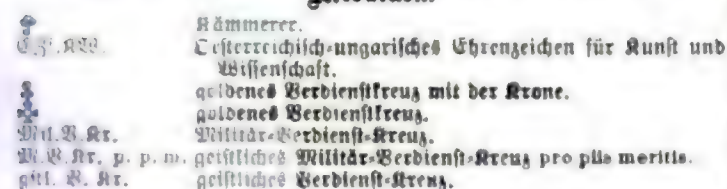 Kämmerer.
Oesterreichisch-ungarisches Ehrenzeichen für Kunst und
Wissenschaft.
goldenes Verdienstkreuz mit der Krone.
goldenes Verdienstkreuz.
Mil.V.Kr. Militär-Verdienst-Kreuz.
M.V.Kr. p. p. m. geistliches Militär-Verdienst-Kreuz pro piis meritis.
gstl. V. Kr. geistliches Verdienst-Kreuz.